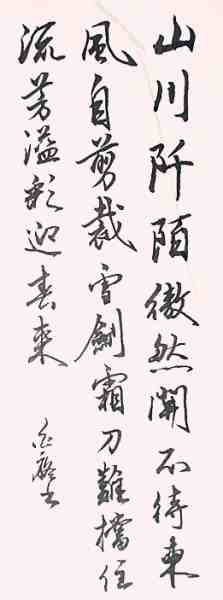 山川阡陌傲然開不待東
風自剪裁雪劍霜刀難擋住
流芳溢彩迎春來